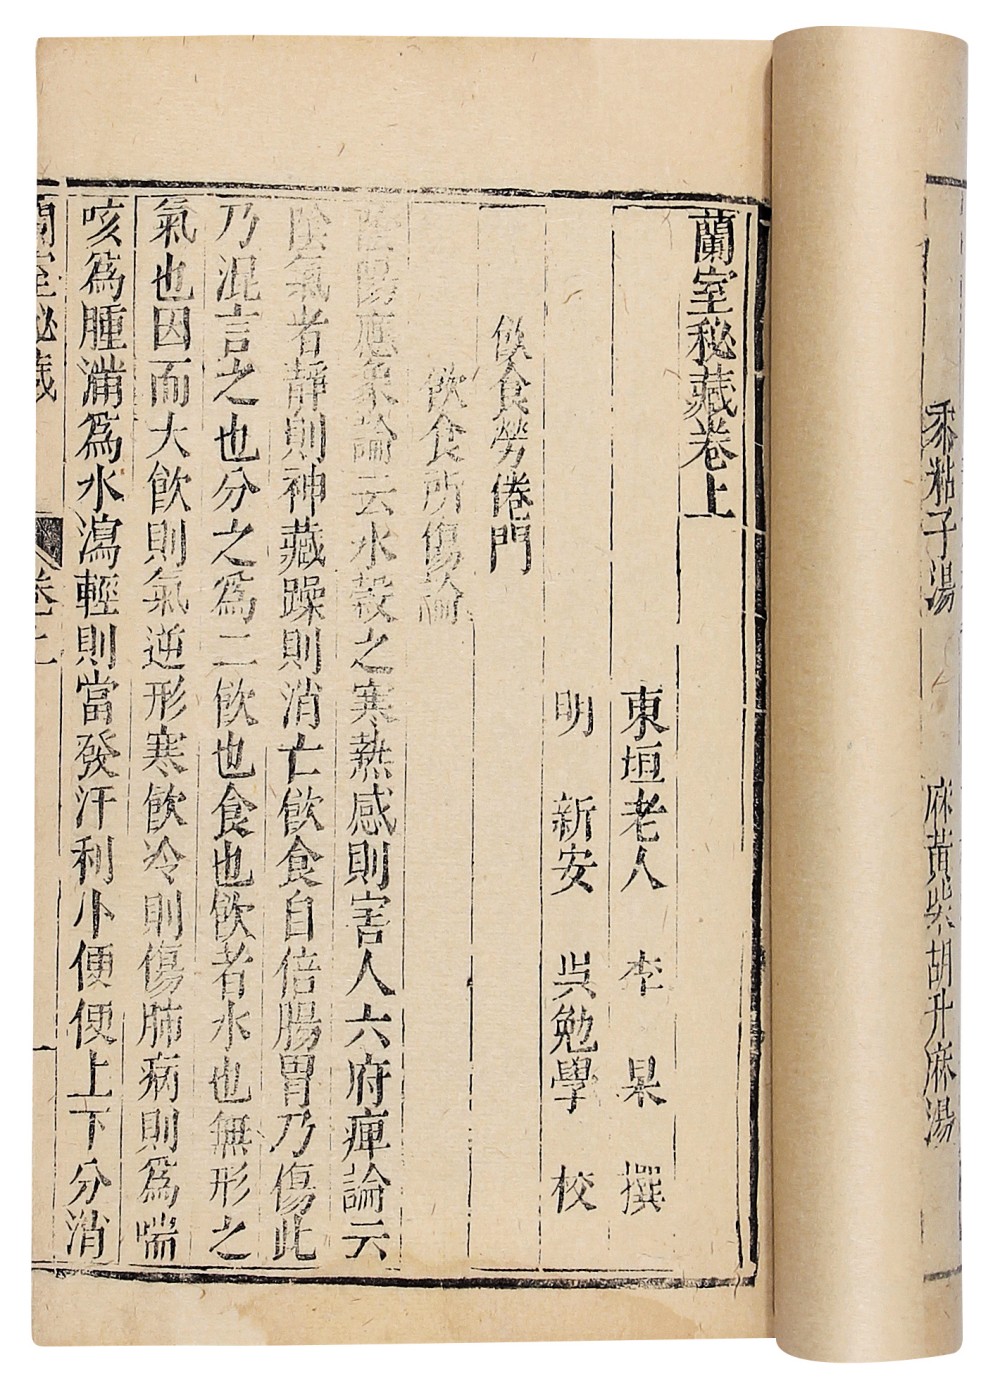 黍粘子湯　麻黄柴胡升麻湯
蘭室秘藏卷上
東垣老人　李　杲　撰
明　新安　吳勉學　校
飲食勞倦門
飲食所傷論
陰陽應象論云水穀之寒熱感則害人六府痺論云
陰氣者靜則神藏躁則消亡飲食自倍腸胃乃傷此
乃混言之也分之為二飲也食也飲者水也無形之
氣也因而大飲則氣逆形寒飲冷則傷肺病則為喘
咳為腫滿為水瀉輕則當發汗利小便便上下分消
蘭室秘藏　卷上　一